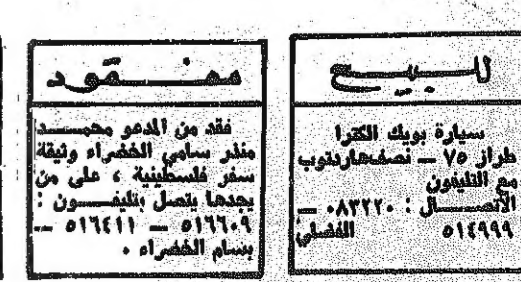 للبيع
سيارة بويك الكترا
طراز ٧٥ — نصف هاردتوب
مع التليفون
الاتصال : ٠٨٣٢٢٠ —
٥١٤٩٩٩ الفضلي
مفقود
فقد من المدعو محمد
منذر سامي الخضراء وثيقة
سفر فلسطينية ، على من
يجدها يتصل بتليفون :
٥١٦٦٠٩ — ٥١٦٤١١ —
بسام الخضراء .